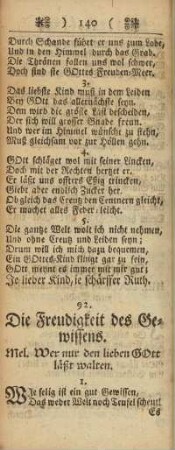 ) 140 (
Durch Schande führt er uns zum Lobe,
Und in den Himmel durch das Grab.
Die Thränen fallen uns wol schwer,
Doch sind sie GOttes Freuden-Meer.
3.
Das liebste Kind muß in dem Leiden
Bey GOtt das allernächste seyn.
Dem wird die größte Lust bescheiden,
Der sich will grosser Gnade freun.
Und wer im Himmel wünscht zu stehn,
Muß gleichsam vor zur Höllen gehn.
4.
GOtt schläget wol mit seiner Lincken,
Doch mit der Rechten herzet er.
Er läßt uns offters Eßig trincken,
Giebt aber endlich Zucker her.
Ob gleich das Creutz den Centnern gleicht,
Er machet alles Feder-leicht.
5.
Die gantze Welt woit ich nicht nehmen,
Und ohne Creutz und Leiden seyn;
Drum will ich mich dazu bequemen,
Ein GOttes-Kind klingt gar zu fein,
GOtt meynt es immer mit mir gut;
Je lieber Kind, je schärffer Ruth.
92.
Die Freudigkeit des Ge-
wissens.
Mel. Wer nur den lieben GOtt
läßt walten.
1.
Wie selig ist ein gut Gewissen,
Das weder Welt noch Teufel scheut!
Es